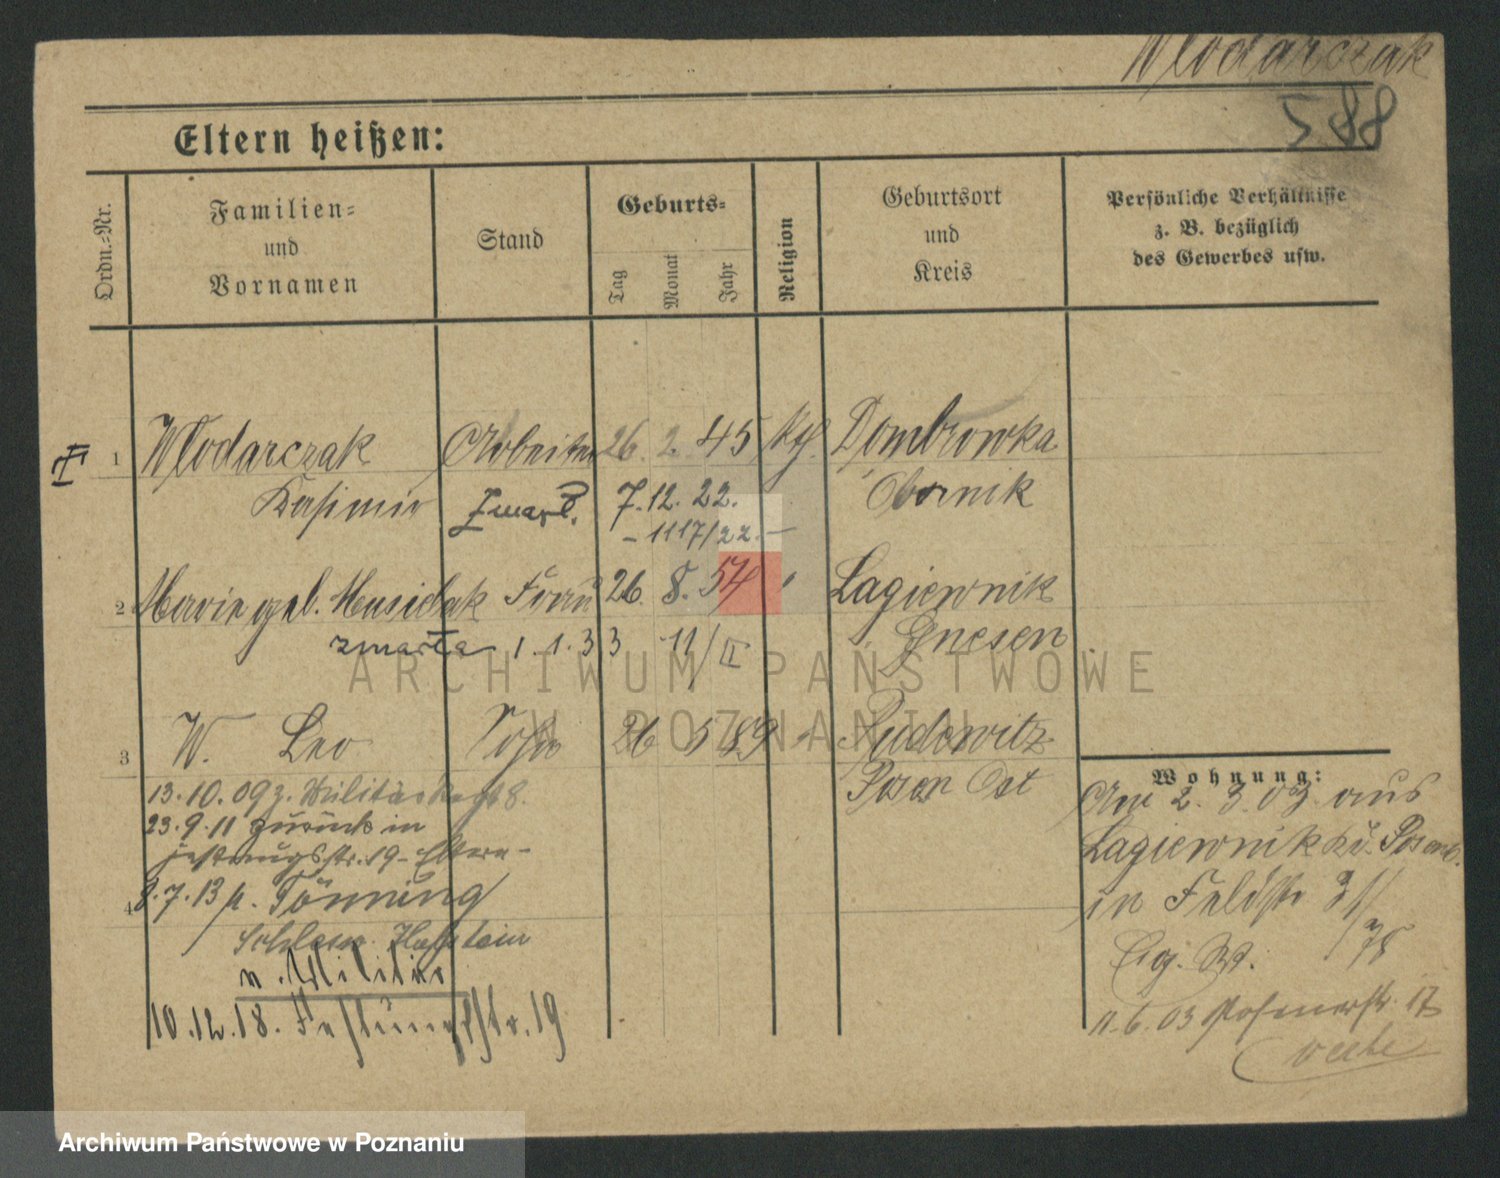 Wlodarczak
588
Eltern heißen:
Ordn.=Nr.
Familien=
und
Vornamen
Stand
Geburts=
Tag
Monat
Jahr
Religion
Geburtsort
und
Kreis
Persönliche Verhältnisse
z. B. bezüglich
des Gewerbes usw.
II
1 Wlodarczak Arbeiter 26. 2. 45 kth. Dombrowka
Kasimir zmarł. 7.12. 22. Obornik
- 1117/22. -
2 Marie geb. Musielak Frau 26. 8. 54 " Lagiewnik
zmarła 1.1.33 11/II Gnesen
ARCHIWUM PAŃSTWOWE
W POZNANIU
3 W. Leo Sohn 26 5 89 " Rudowitz
Posen Ost
13.10.09 z. Militär Regt 8.
23.9.11 zurück in
Festungsstr. 19 - Eltern -
4 8.7.13 p. Tönning
Schlesw. Holstein
v. Militär
10.12.18. Festungsstr. 19
Wohnung:
Am 2. 3. 03 aus
Lagiewnik Kr. Posen
in Feldstr 31/
75
Eig. W.
11.6.03 Posenerstr. 17
Archiwum Państwowe w Poznaniu